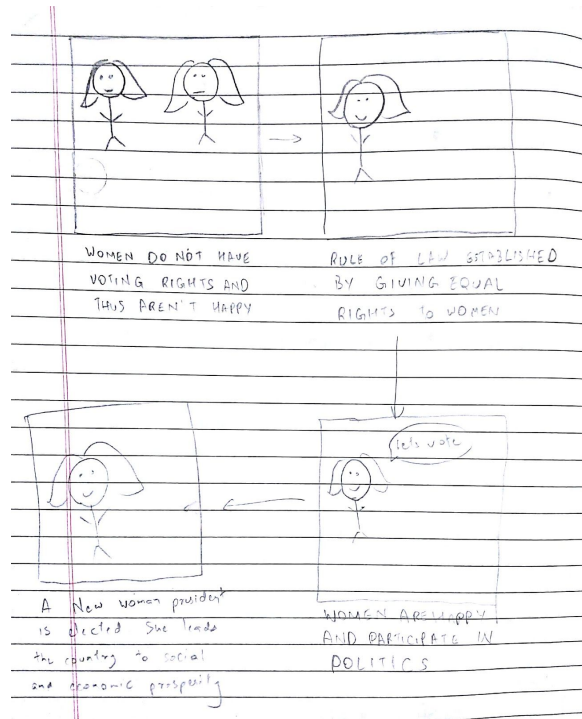 WOMEN DO NOT HAVE
VOTING RIGHTS AND
THUS AREN'T HAPPY
RULE OF LAW ESTABLISHED
BY GIVING EQUAL
RIGHTS TO WOMEN
let's vote
WOMEN ARE HAPPY
AND PARTICIPATE IN
POLITICS
A New woman president
is elected She leads
the country to social
and economic prosperity